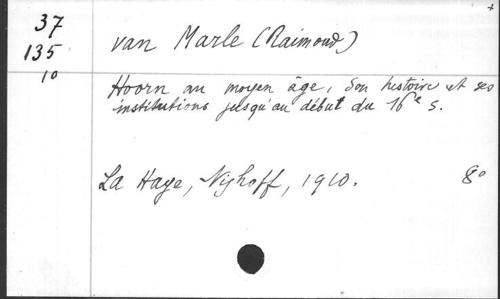 37
135
10
van Marle (Raimond)
Hoorn au moyen âge, son histoire et ses
institutions jusqu'au début du 16e s.
La Haye, Nijhoff, 1910. 8°